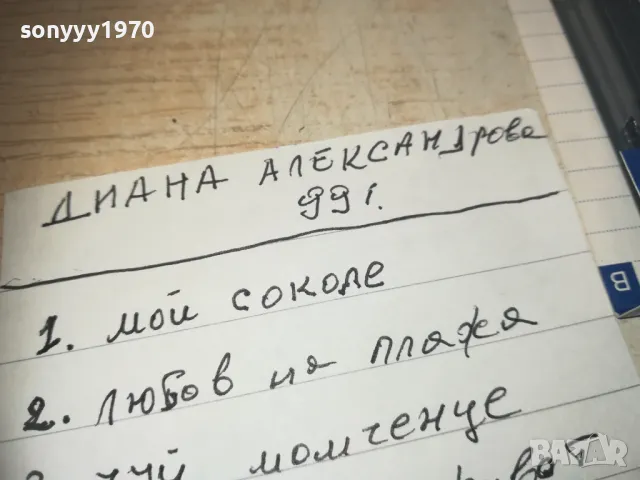 sonyyy1970
ДИАНА АЛЕКСАНДрова
99г.
1. мой соколе
2. любов на плажа
чуй момченце
B
BAZAR